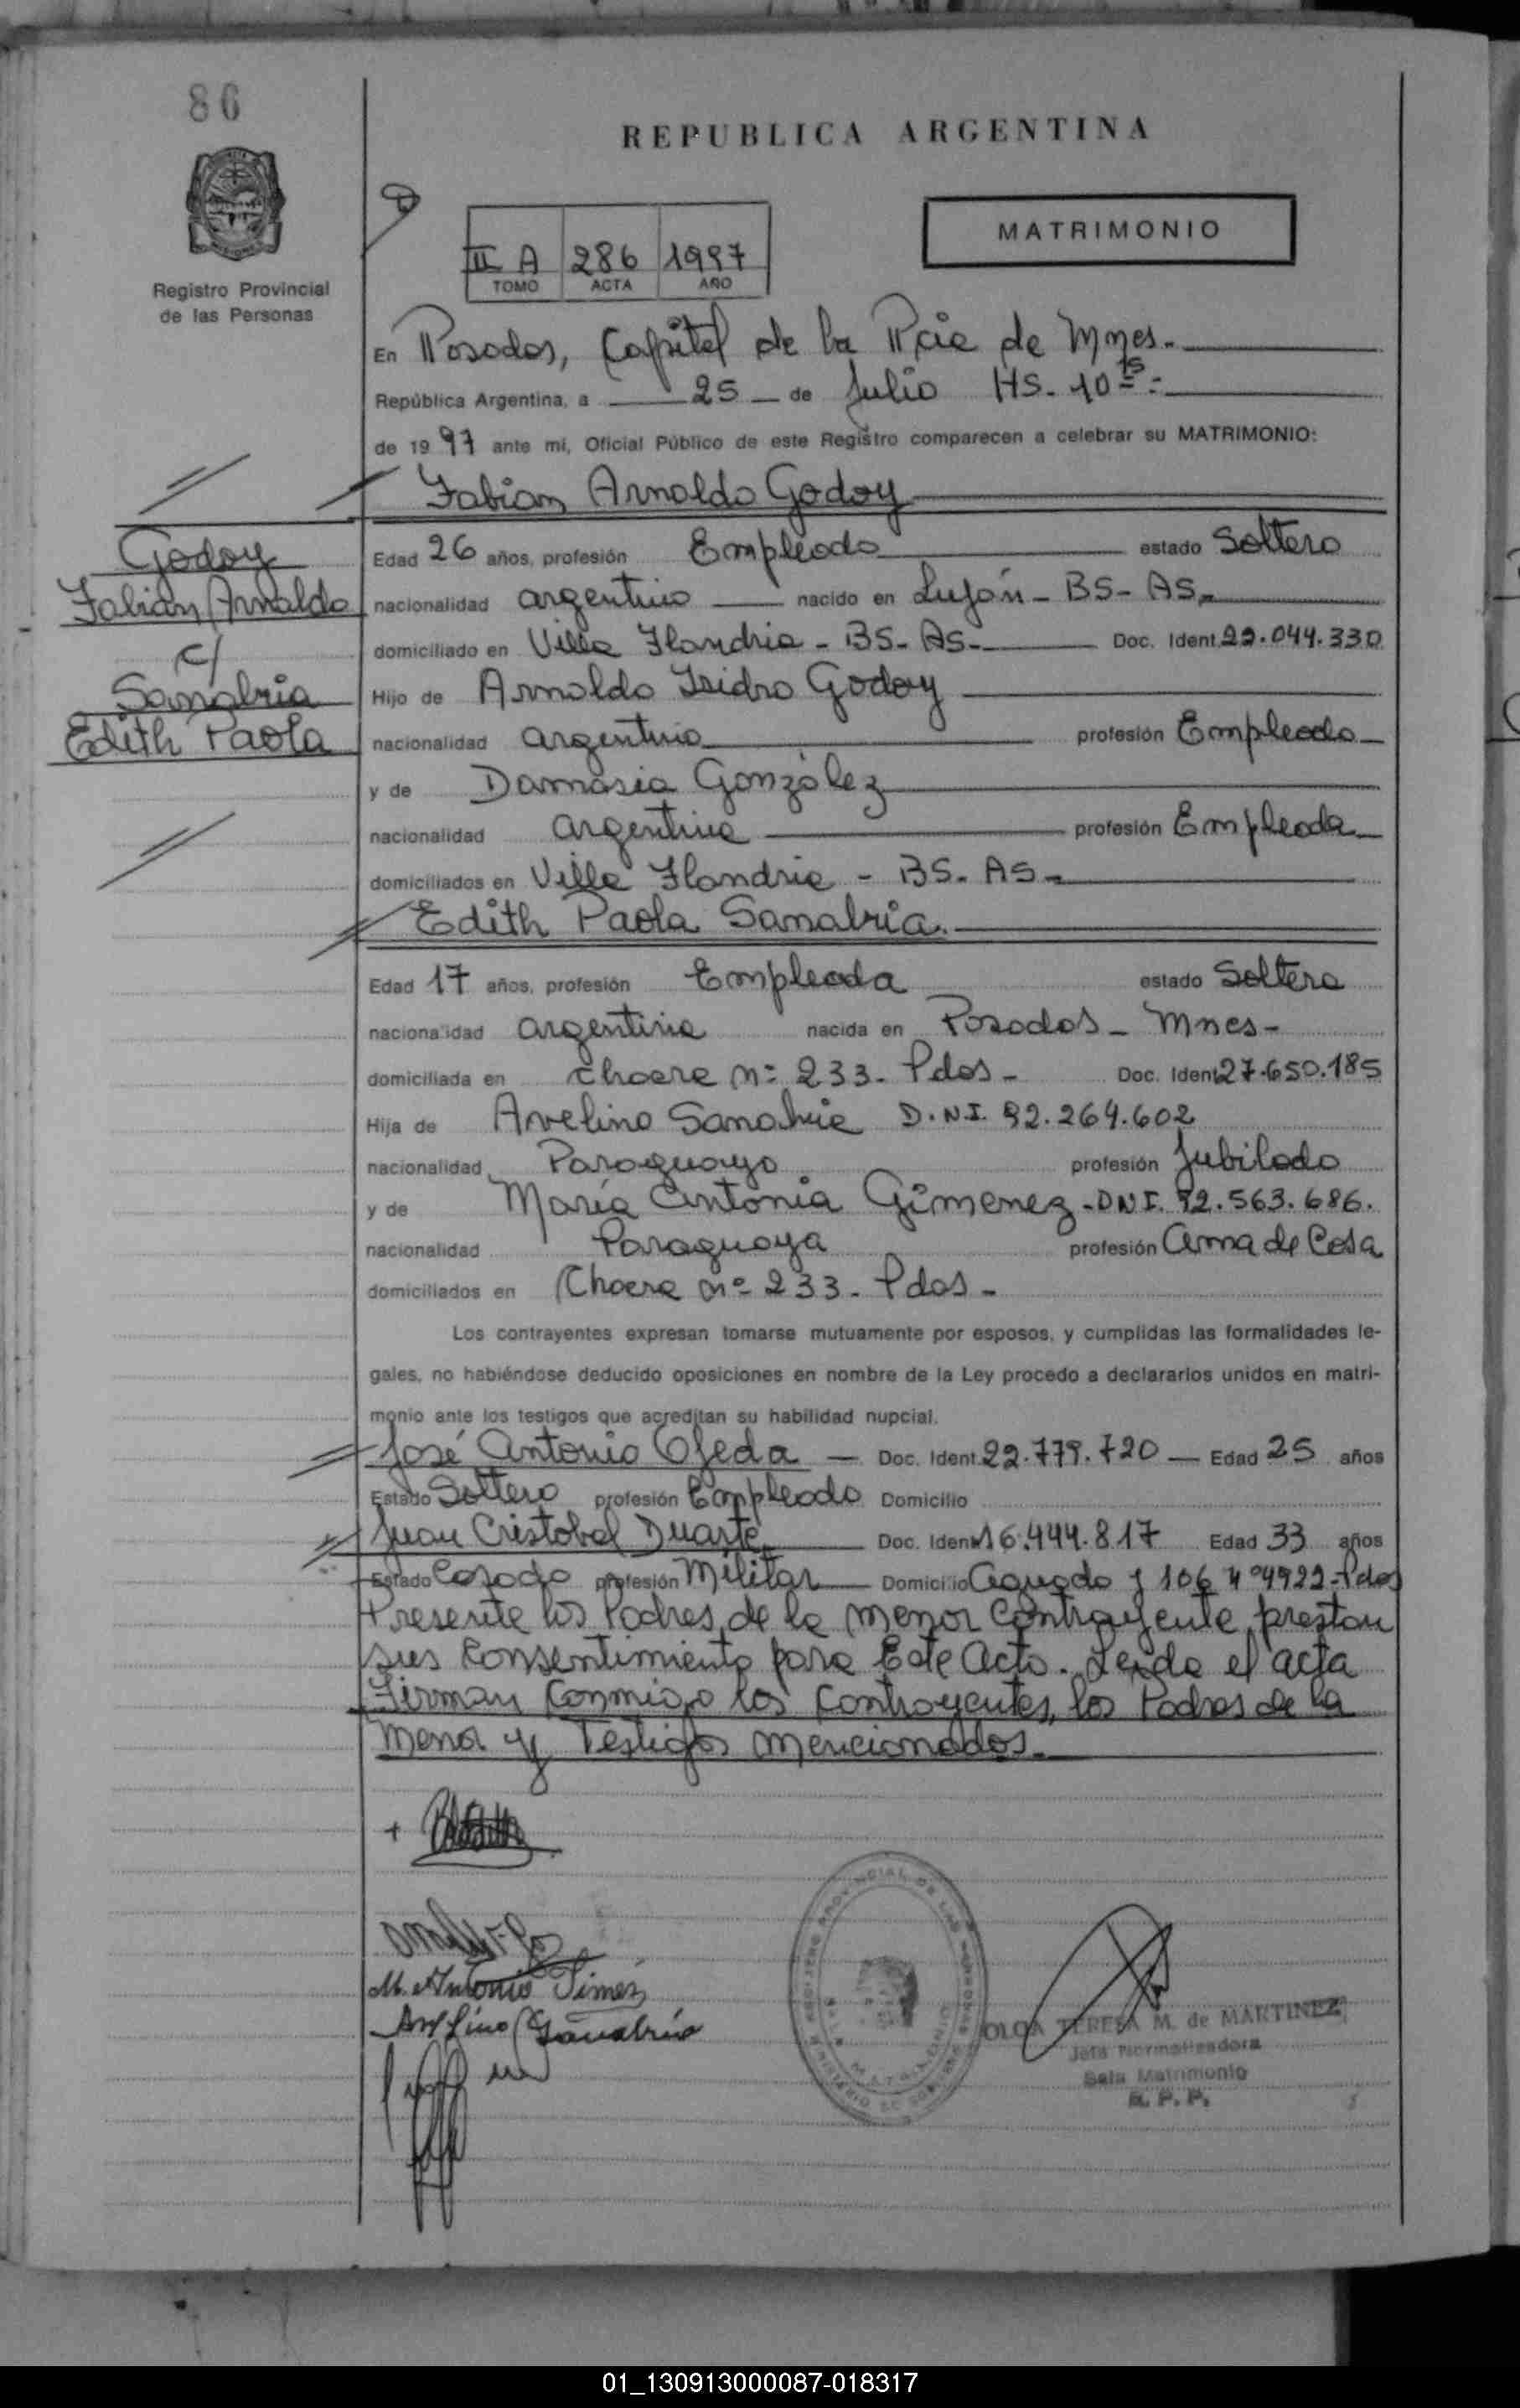 86
REPUBLICA ARGENTINA
MATRIMONIO
II A 286 1997
TOMO ACTA AÑO
Registro Provincial
de las Personas
En Posadas, Capital de la Pcia de Mnes.
República Argentina, a 25 de Julio HS. 10 15
de 19 97 ante mi, Oficial Público de este Registro comparecen a celebrar su MATRIMONIO:
Fabian Arnaldo Godoy
Godoy
Fabián Arnaldo
c/
Sanabria
Edith Paola
Edad 26 años, profesión Empleado estado Soltero
nacionalidad argentino nacido en Luján - BS - AS.
domiciliado en Villa Flandria - BS - AS. Doc. Ident. 22.044.330
Hijo de Arnaldo Isidro Godoy
nacionalidad argentino profesión Empleado
y de Damasia González
nacionalidad argentina profesión Empleada
domiciliados en Villa Flandria - BS. AS
Edith Paola Sanabria.
Edad 17 años, profesión Empleada estado Soltera
nacionalidad argentina nacida en Posadas - Mnes -
domiciliada en Chacra nº 233. Pdas - Doc. Ident. 27.650.185
Hija de Avelino Sanabria D.N.I. 92.264.602
nacionalidad Paraguayo profesión Jubilado
y de María Antonia Gimenez - DNI. 92.563.686.
nacionalidad Paraguaya profesión ama de Casa
domiciliados en Chacra nº 233. Pdas -
Los contrayentes expresan tomarse mutuamente por esposos, y cumplidas las formalidades le-
gales, no habiéndose deducido oposiciones en nombre de la Ley procedo a declararlos unidos en matri-
monio ante los testigos que acreditan su habilidad nupcial.
José Antonio Ojeda — Doc. Ident. 22.779.720 — Edad 25 años
Estado Soltero profesión Empleado Domicilio
Juan Cristobal Duarte Doc. Ident. 16.444.817 Edad 33 años
Estado Casado profesión Militar Domicilio Aguado y 106 nº 4922 - Pdas
Presente los Padres de la menor contrayente prestan
sus consentimiento para Este Acto. Leida el acta
Firman conmigo los contrayentes, los Padres de la
menor y Testigos mencionados.
M. Antonia Jimén
Avelino Sanabria
OLGA TERESA M. de MARTINEZ
Jefa Normalizadora
Sala Matrimonio
R. P. P.
01_130913000087-018317